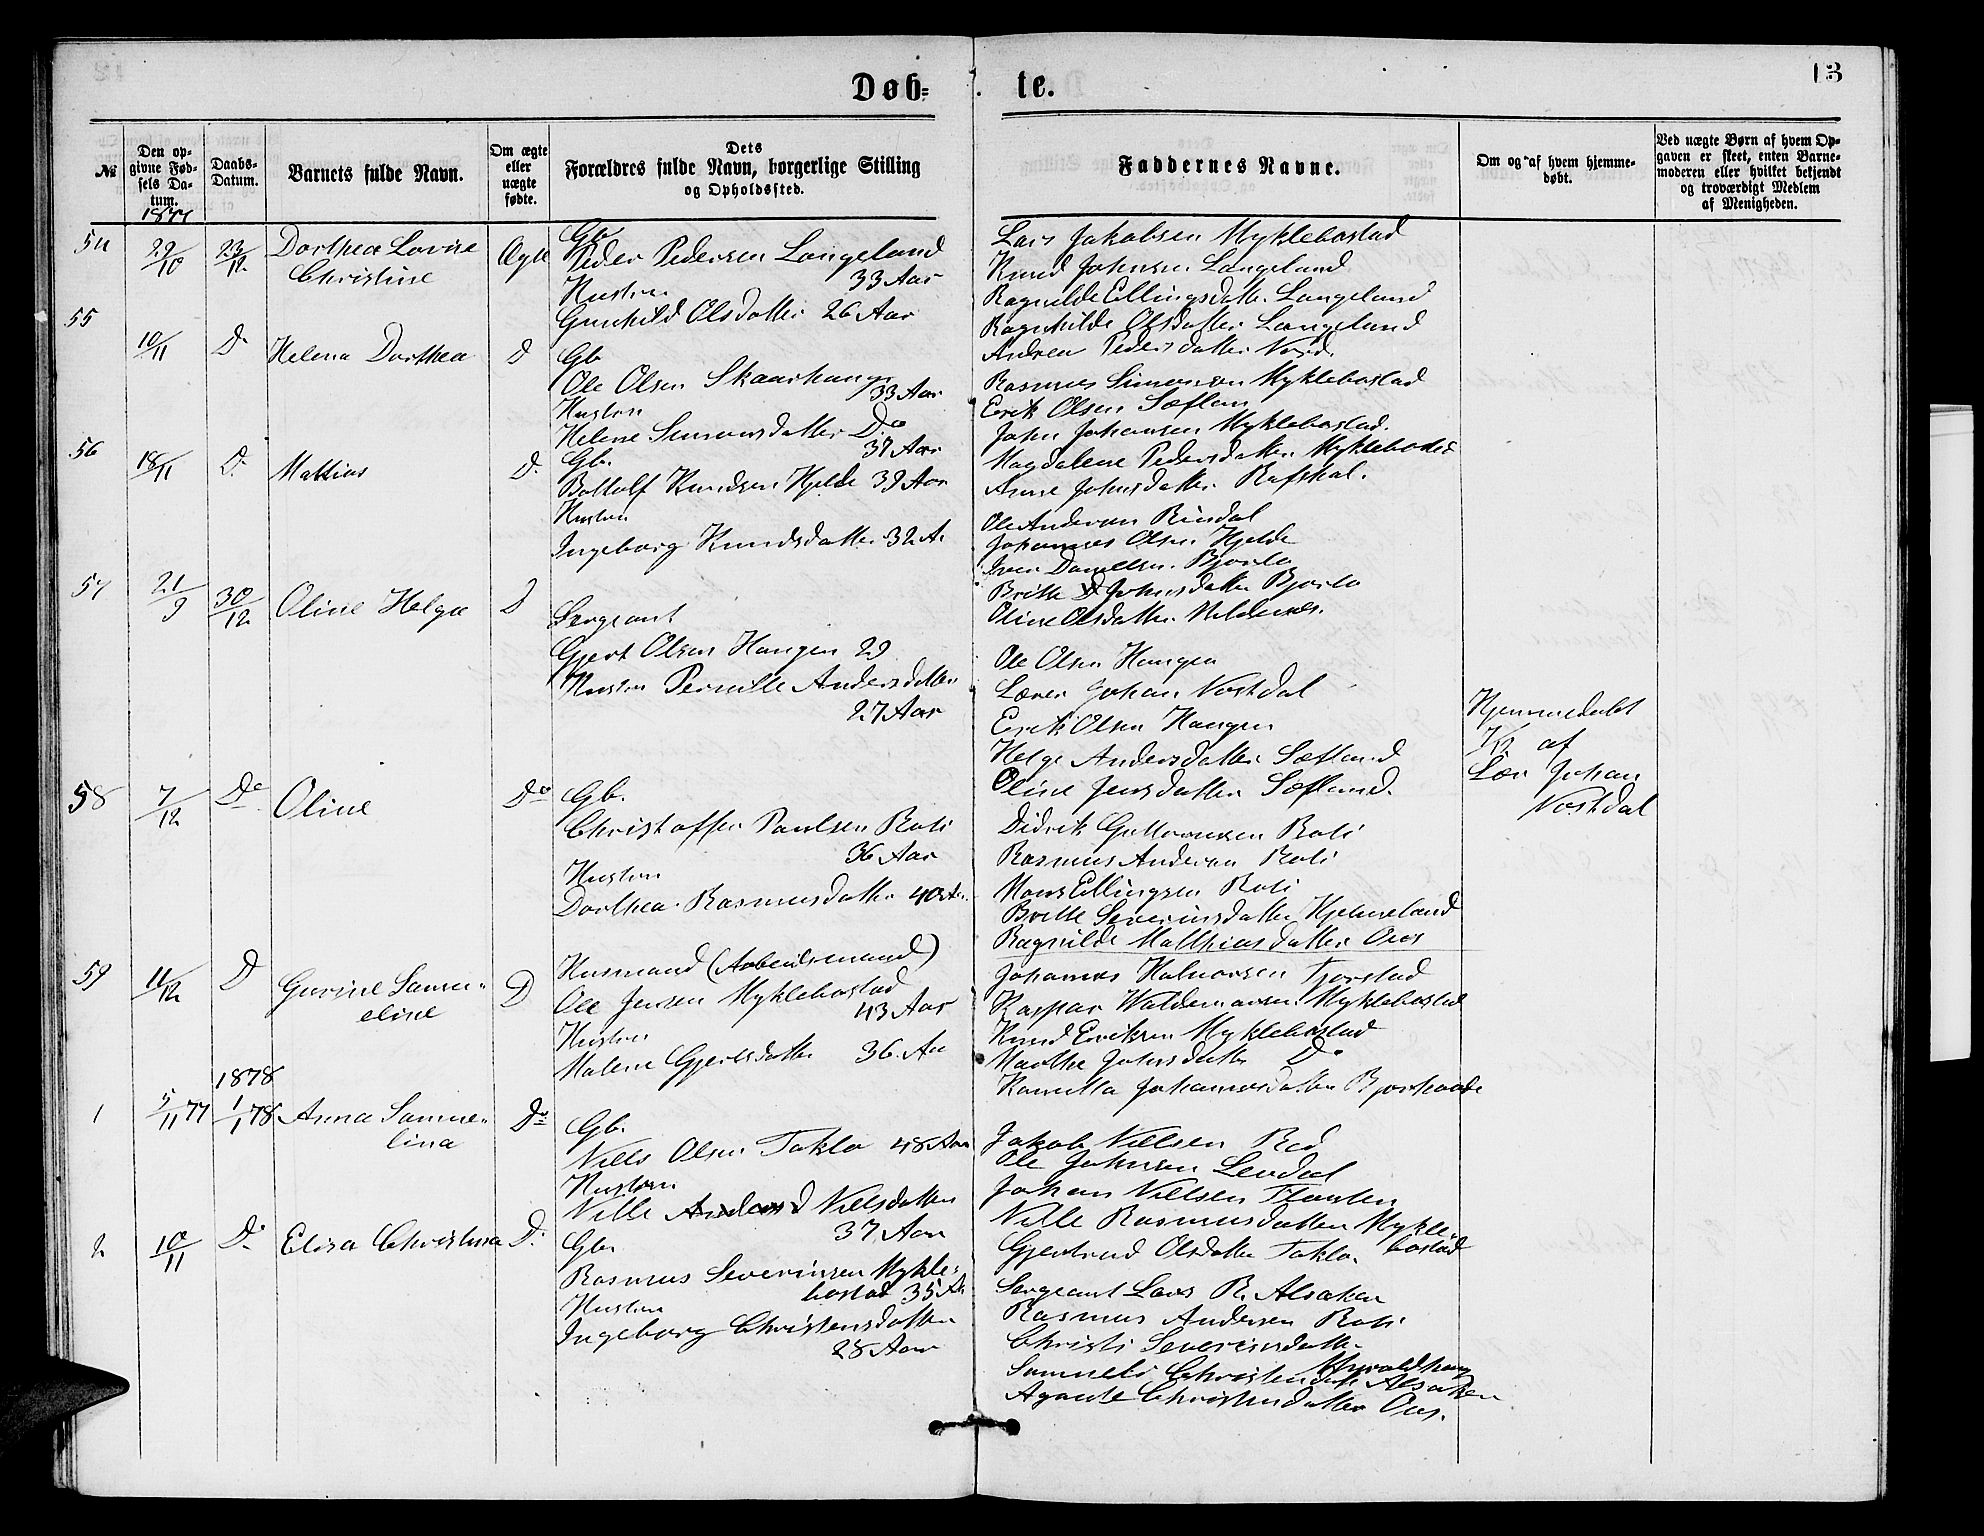 Døb-
te.
13
№
Den op-
givne Fød-
sels Da-
tum.
Daabs-
Datum.
Barnets fulde Navn.
Om ægte
eller
uægte
fødte.
Dets
Forældres fulde Navn, borgerlige Stilling
og Opholdssted.
Faddernes Navne.
Om og af hvem hjemme-
døbt.
Ved uægte Børn af hvem Op-
gaven er skeet, enten Barne-
moderen eller hvilket bekjendt
og troværdigt Medlem
af Menigheden.
1877
54
22/10
23/12
Dorthea Lovise
Christine
Ægte
Gb
Peder Pedersen Langeland
33 Aar
Hustru
Gunhild Olsdatter 26 Aar
Lars Jakobsen Myklebostad
Knud Johnsen Langeland
Ragnilde Ellingsdatter Langeland
Ragnhilde Olsdatter Langeland
Andrea Pedersdatter
55
10/11
D
Helena Dorthea
D
Gb
Ole Olsen Skaarhaug
33 Aar
Hustru
Helene Simonsdatter Do
37 Aar
Rasmus Simonsen Myklebostad
Erik Olsen Sæfland
John Johansen Myklebostad.
Magdalene Pedersdatter Myklebostad
Anne Johnsdatter Rafskal.
56
18/11
D.
Mathias
D.
Gb.
Bottolf Knudsen Hjelde 39 Aar
Hustru
Ingeborg Knudsdatter 32 A.
Ole Andersen Rinsdal
Johannes Olsen Hjelde
Iver Danielsen Bjorlo
Britte Johnsdatter Bjorlo
Oline Olsdatter
57
21/9
30/12
Oline Helga
D
Sergeant
Gjert Olsen Haugen 29
Hustru Pernille Andersdatter
27 Aar
Ole Olsen Haugen
Lærer Johan Nostdal
Erik Olsen Haugen
Helge Andersdatter Sæfland
Oline Jensdatter Sæfland.
Hjemmedøbt
af
Lær Johan
Nostdal
58
7/12
Do
Oline
Do
Gb.
Christoffer Paulsen Roti
36 Aar
Hustru
Dorthea Rasmusdatter 40 A.
Didrik Guttormsen Roti
Rasmus Andersen Roti
Mons Ellingsen Roti
Britte Severinsdatter Hjelmeland
Ragnilde Matthiasdatter Ous
59
11/12
D
Gurine Samu-
eline
D
Husmand (Arbeidsmand)
Ole Jensen Myklebostad
43 Aar
Hustru
Malene Gjertsdatter 36 Aar
Johannes Halvorsen Tjorstad
Kaspar Waldemarsen Myklebostad
Knud Eriksen Myklebostad
Marthe Johnsdatter D.
Kamilla Johannesdatter
1878
1
5/11 77
1/1 78
Anna Samue-
lina
Do
Gb.
Nills Olsen Taklo 48 Aar
Hustru
Nille Nilsdatter
37 Aar
Jakob Nilsen Red
Ole Johnsen Levdal
Johan Nilsen
Nille Rasmusdatter Mykle-
bostad
Gjertrud Olsdatter Taklo.
2
10/11
D.
Elisa Christina
D.
Gbr
Rasmus Severinsen Mykle-
bostad 35 A
Hustru
Ingeborg Christensdatter
28 Aar
Sergeant Lars R. Alsaker
Rasmus Andersen Roti
Christi Severinsdatter
Samueli Christensdatt Alsaker
Agaute Christensdatter Ous.